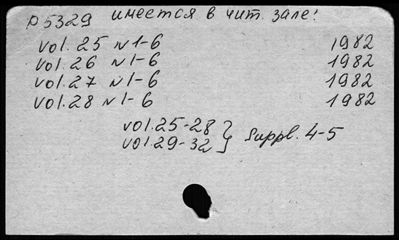 p5329 имеется в чит. зале!
vol. 25 N 1-6 1982
vol. 26 N 1-6 1982
vol. 27 N 1-6 1982
vol. 28 N 1-6 1982
vol. 25-28 } Suppl. 4-5
vol 29-32